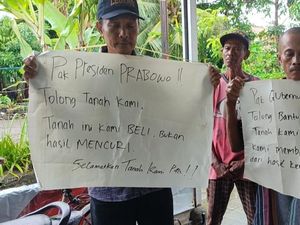 Pak Presiden PRABOWO !!
Tolong Tanah Kami.
Tanah ini Kami BELI, Bukan
hasil MENCURI.
Selamatkan Tanah Kami Pak !!
Pak GUbernur
Tolong Bantu
Tanah Kami
Kami
dari hasil